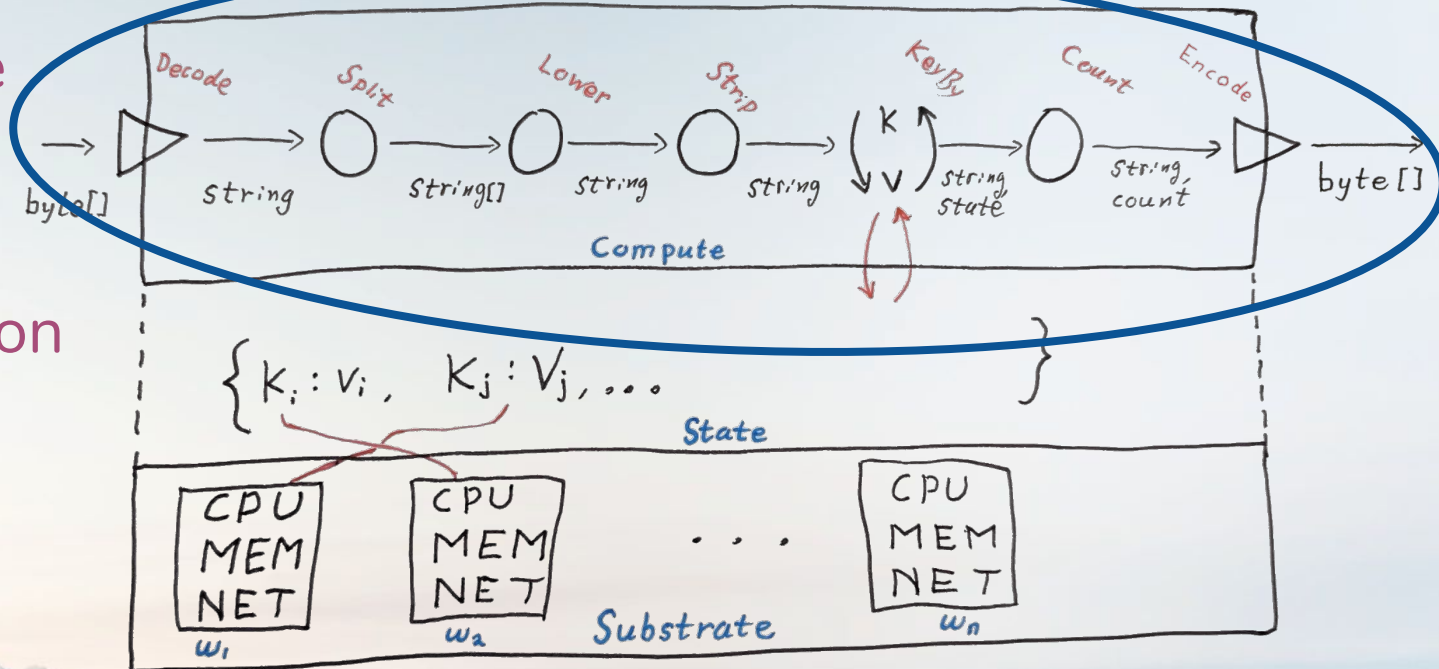 e
Decode Split Lower Strip KeyBy Count Encode
K
V
byte[] string string[] string string string, state string, count byte[]
Compute
on
{ Ki : Vi , Kj : Vj , ... }
State
CPU CPU CPU
MEM MEM . . . MEM
NET NET NET
w1 w2 Substrate wn